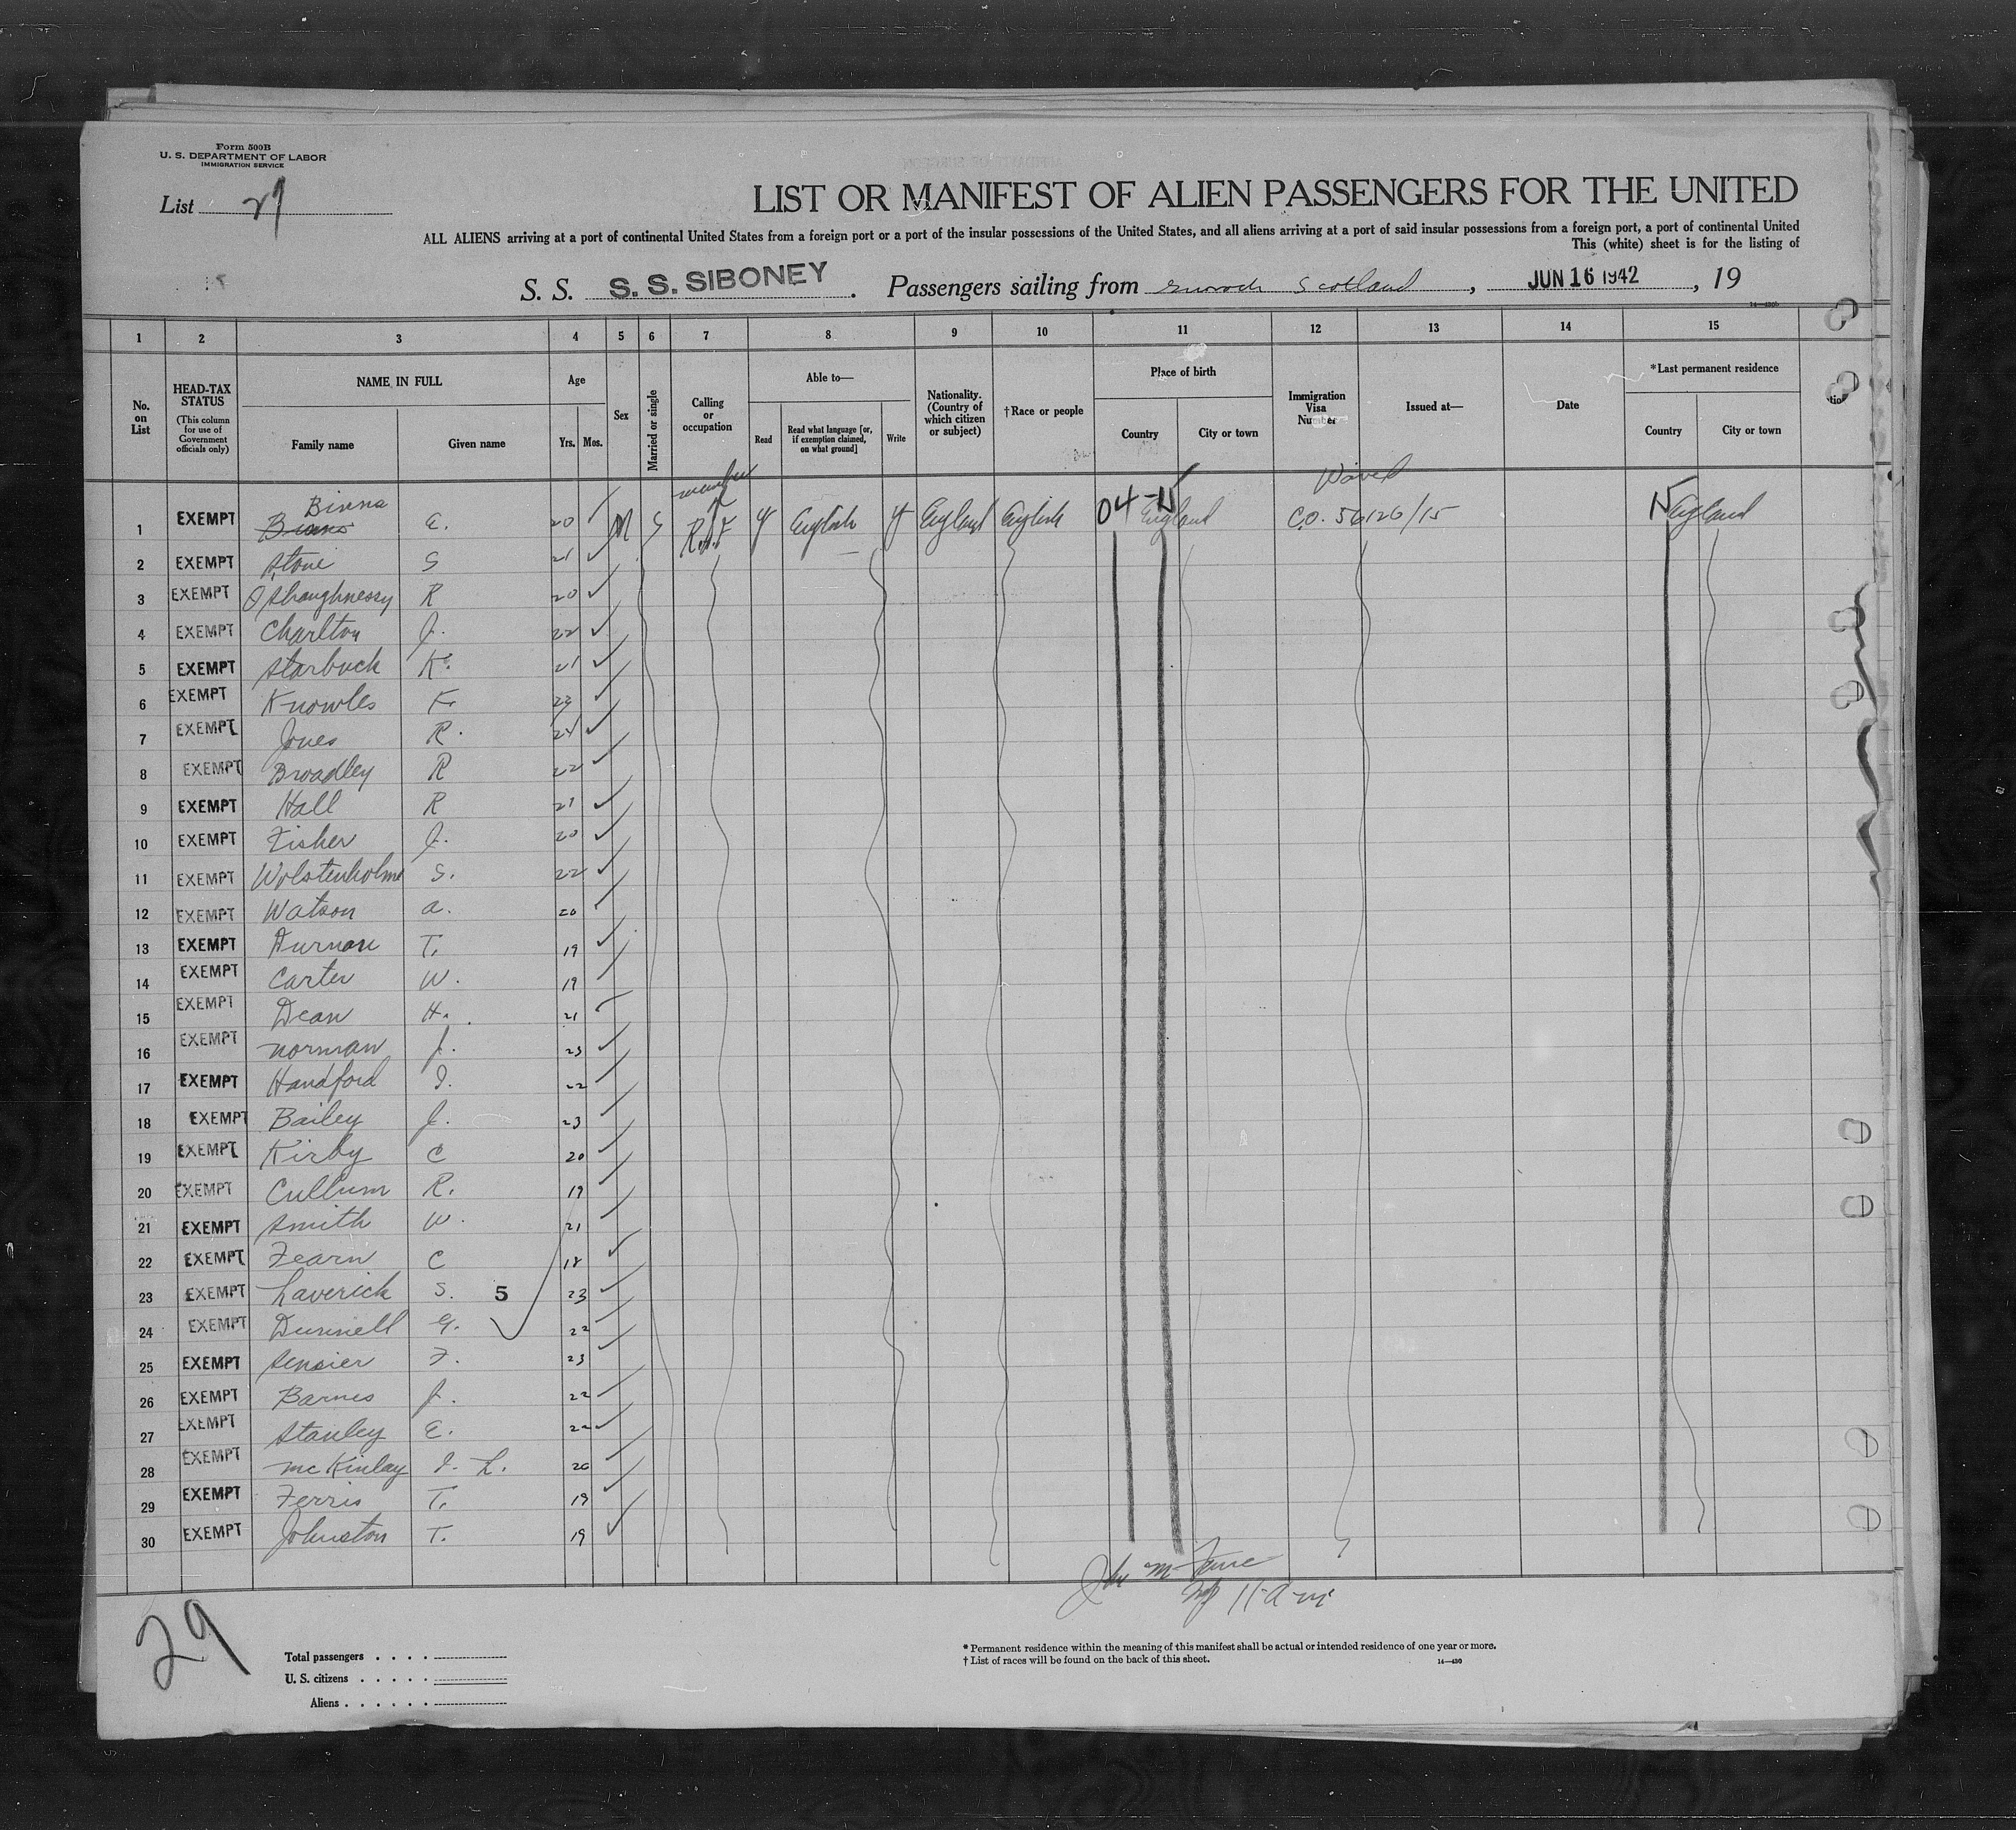 Form 500B
U. S. DEPARTMENT OF LABOR
IMMIGRATION SERVICE
List 29
LIST OR MANIFEST OF ALIEN PASSENGERS FOR THE UNITED
ALL ALIENS arriving at a port of continental United States from a foreign port or a port of the insular possessions of the United States, and all aliens arriving at a port of said insular possessions from a foreign port, a port of continental United
This (white) sheet is for the listing of
S. S. S. S. SIBONEY. Passengers sailing from Scotland, JUN 16 1942, 19
1 2 3 4 5 6 7 8 9 10 11 12 13 14 15
No. on List
HEAD-TAX STATUS (This column for use of Government officials only)
NAME IN FULL
Family name Given name
Age
Yrs. Mos.
Sex
Married or single
Calling or occupation
Able to—
Read
Read what language [or, if exemption claimed, on what ground]
Write
Nationality. (Country of which citizen or subject)
†Race or people
Place of birth
Country City or town
Immigration Visa Number
Issued at—
Date
*Last permanent residence
Country City or town
member of Waived
1 EXEMPT Binns E. 20 M S R.A.F. Y English Y England English 04-15 England C.O. 56126/15 England
2 EXEMPT Stone S 21
3 EXEMPT O'Shaughnessy R 20
4 EXEMPT Charlton J. 22
5 EXEMPT Starbuck K. 21
6 EXEMPT Knowles F. 23
7 EXEMPT Jones R. 21
8 EXEMPT Broadley R 22
9 EXEMPT Hall R 21
10 EXEMPT Fisher J. 20
11 EXEMPT Wolstenholme S. 22
12 EXEMPT Watson A. 20
13 EXEMPT Durnan T. 19
14 EXEMPT Carter W. 19
15 EXEMPT Dean H. 21
16 EXEMPT Norman J. 23
17 EXEMPT Handford I. 22
18 EXEMPT Bailey J. 23
19 EXEMPT Kirby C 20
20 EXEMPT Cullum R. 19
21 EXEMPT Smith W. 21
22 EXEMPT Fearn C 18
23 EXEMPT Laverick S. 5 23
24 EXEMPT Dunnell G. 22
25 EXEMPT Sensier F. 23
26 EXEMPT Barnes J. 22
27 EXEMPT Stanley E. 22
28 EXEMPT McKinlay I. L. 20
29 EXEMPT Ferris T. 19
30 EXEMPT Johnston T. 19
29
Total passengers
U. S. citizens
Aliens
* Permanent residence within the meaning of this manifest shall be actual or intended residence of one year or more.
† List of races will be found on the back of this sheet.
14—430